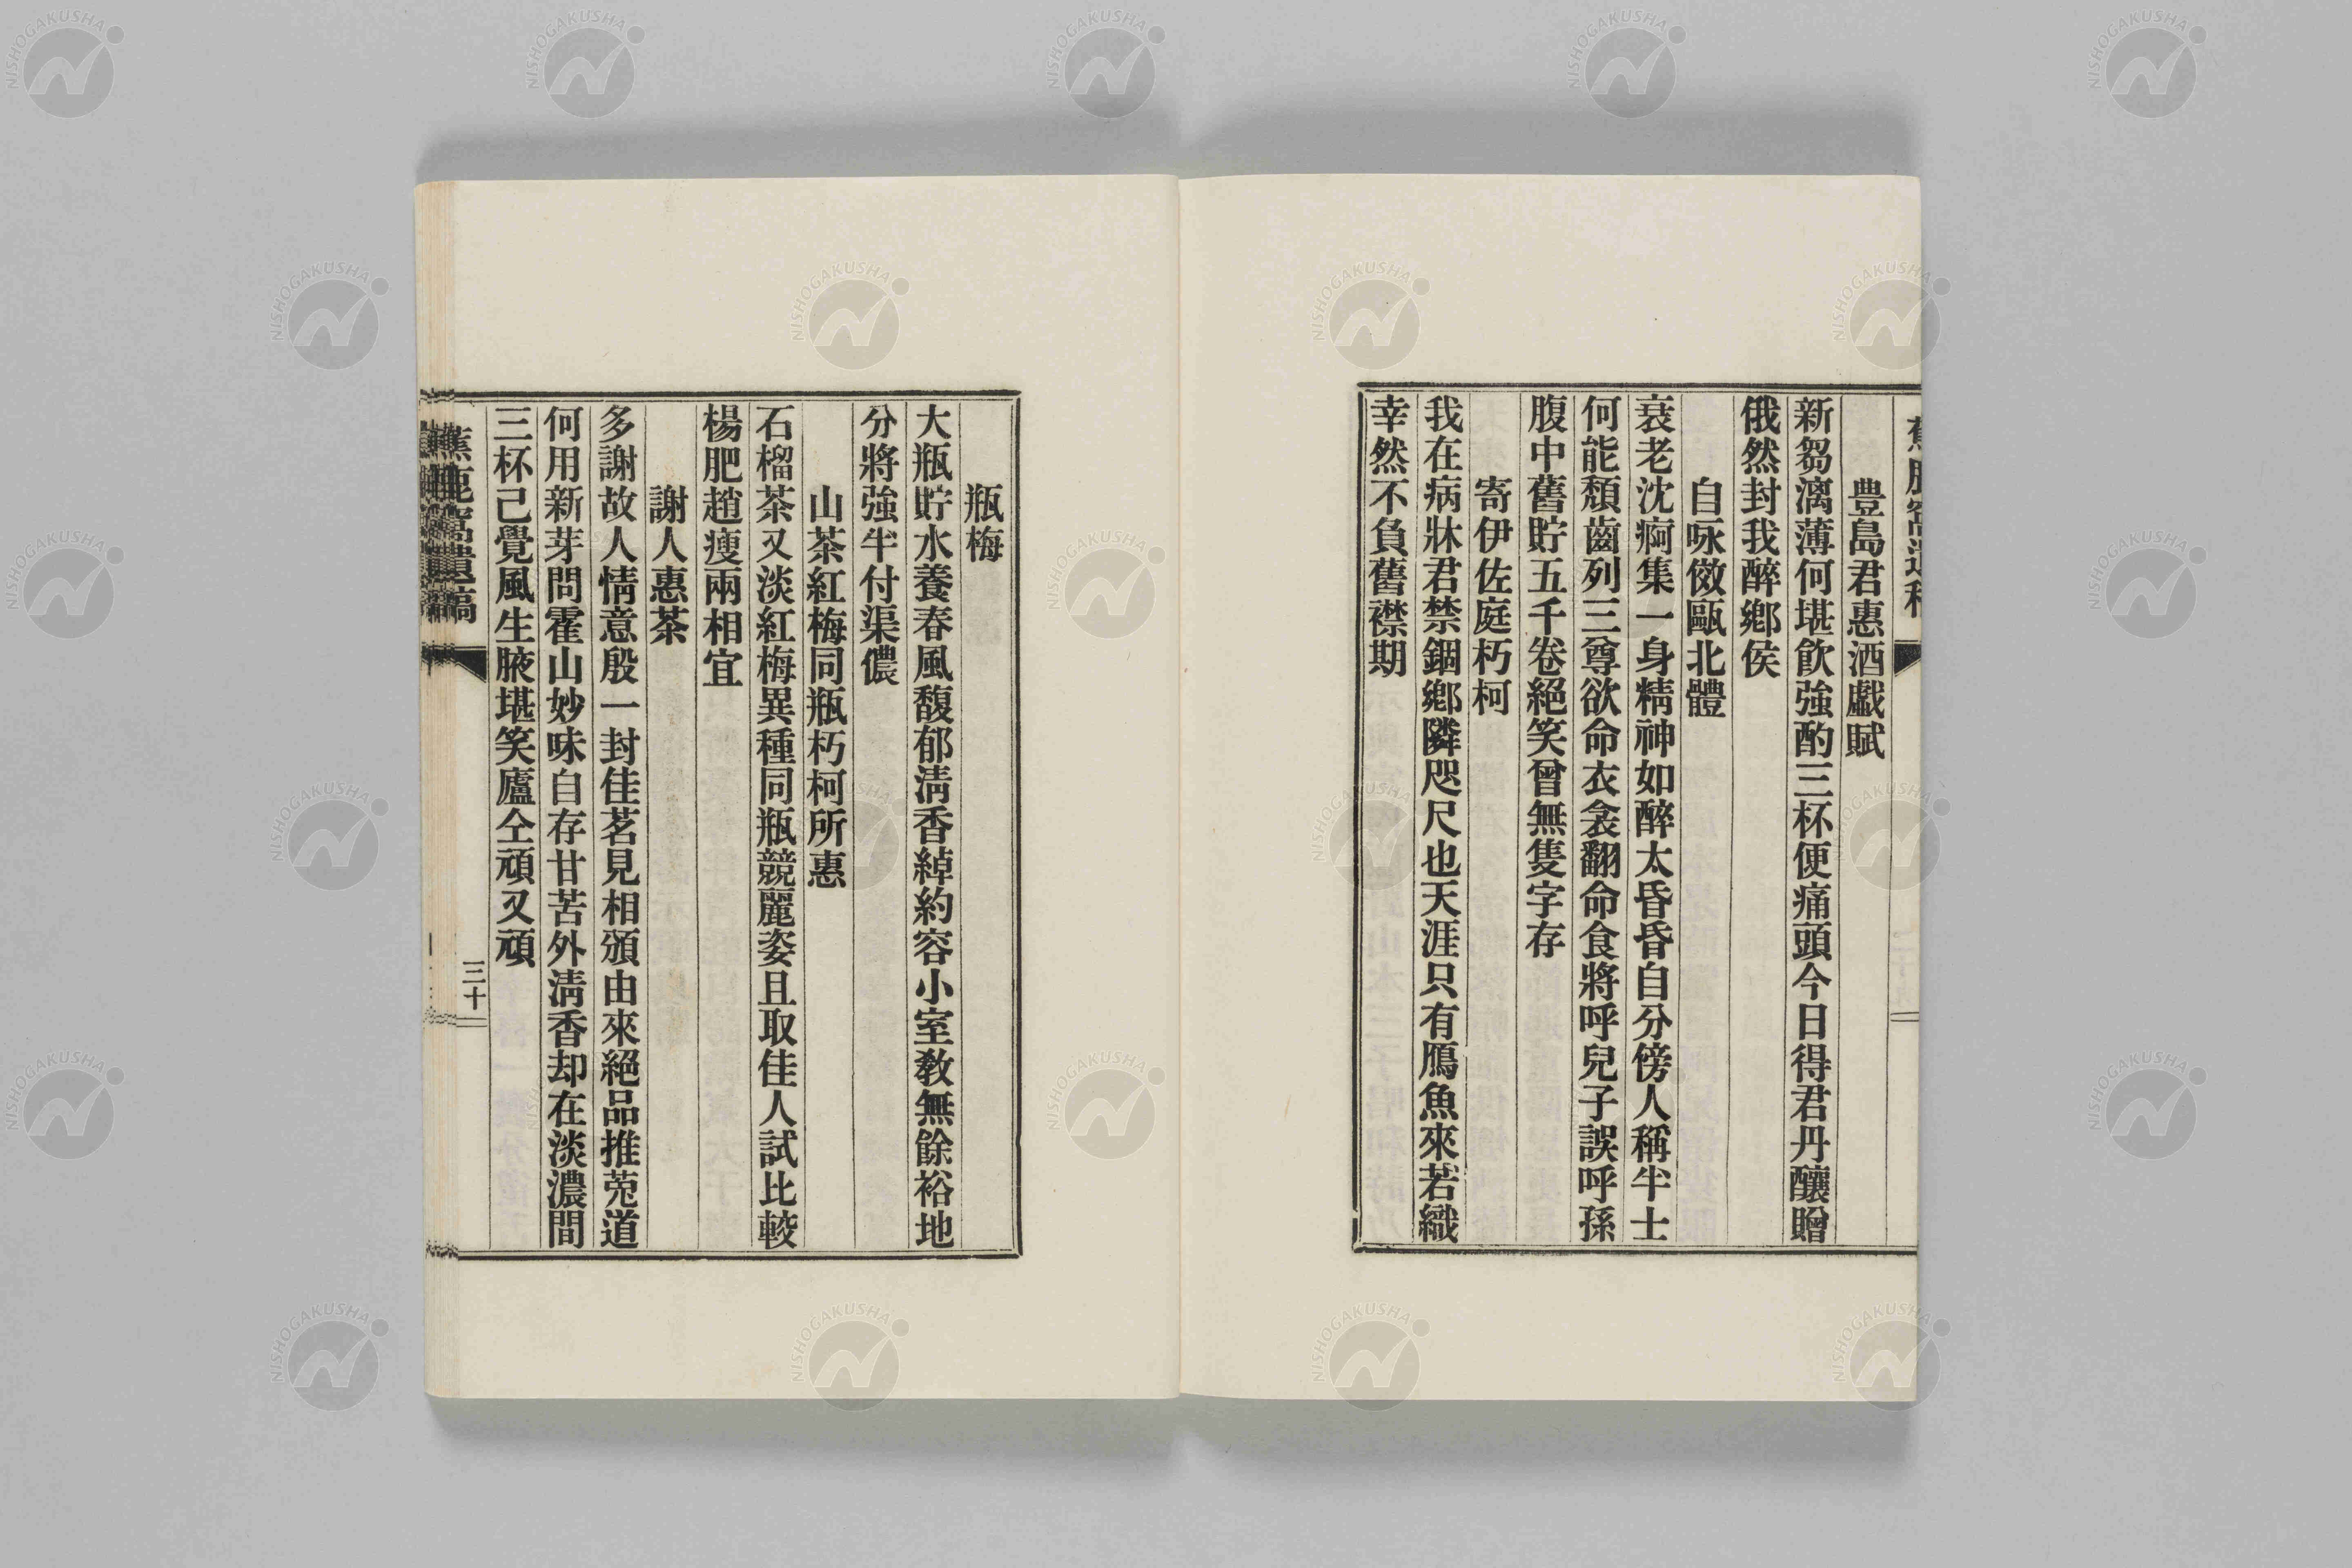 豊島君惠酒戲賦
新芻漓薄何堪飮強酌三杯便痛頭今日得君丹釀贈
俄然封我醉鄕侯
自咏傚甌北體
衰老沈痾集一身精神如醉太昏昏自分傍人稱半士
何能頹齒列三尊欲命衣衾翻命食將呼兒子誤呼孫
腹中舊貯五千卷絕笑曾無隻字存
寄伊佐庭朽柯
我在病牀君禁錮鄕隣咫尺也天涯只有鴈魚來若織
幸然不負舊襟期
瓶梅
大瓶貯水養春風馥郁淸香綽約容小室敎無餘裕地
分將強半付渠儂
山茶紅梅同瓶朽柯所惠
石榴茶又淡紅梅異種同瓶競麗姿且取佳人試比較
楊肥趙瘦兩相宜
謝人惠茶
多謝故人情意殷一封佳茗見相頒由來絕品推莵道
何用新芽問霍山妙味自存甘苦外淸香却在淡濃間
三杯已覺風生腋堪笑廬仝頑又頑
蕉鹿窩遺稿
三十
NISHOGAKUSHA